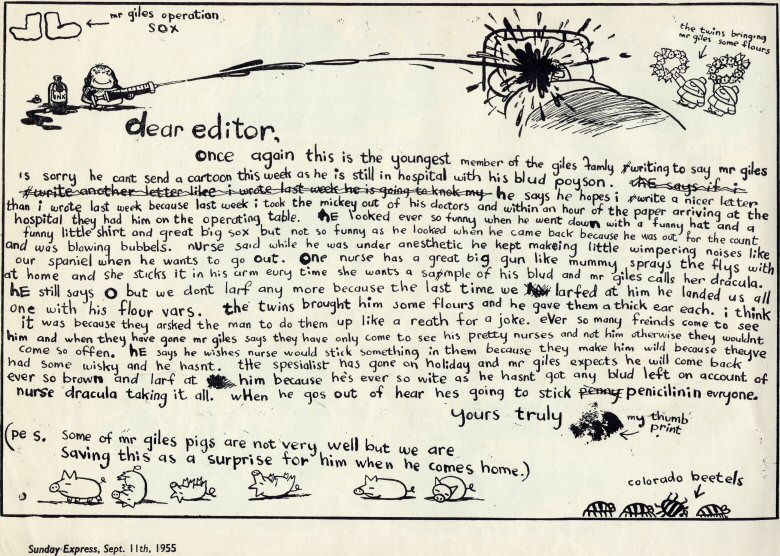 mr giles operation
sox
the twins bringing
mr giles some flours
INK
dear editor,
once again this is the youngest member of the giles famly writing to say mr giles
is sorry he cant send a cartoon this week as he is still in hospital with his blud poyson. hE says if i
write another letter like i wrote last week he is going to knok my he says he hopes i write a nicer letter
than i wrote last week because last week i took the mickey out of his doctors and within an hour of the paper arriving at the
hospital they had him on the operating table. hE looked ever so funny when he went down with a funny hat and a
funny little shirt and great big sox but not so funny as he looked when he came back because he was out for the count
and was blowing bubbels. nurse said while he was under anesthetic he kept makeing little wimpering noises like
our spaniel when he wants to go out. One nurse has a great big gun like mummy sprays the flys with
at home and she sticks it in his arm evry time she wants a sample of his blud and mr giles calls her dracula.
hE still says O but we dont larf any more because the last time we larfed at him he landed us all
one with his flour vars. the twins brought him some flours and he gave them a thick ear each. i think
it was because they arsked the man to do them up like a reath for a joke. ever so many freinds come to see
him and when they have gone mr giles says they have only come to see his pretty nurses and not him otherwise they wouldnt
come so offen. hE says he wishes nurse would stick something in them because they make him wild because theyve
had some wisky and he hasnt. the spesialist has gone on holiday and mr giles expects he will come back
ever so brown and larf at him because he's ever so wite as he hasnt got any blud left on account of
nurse dracula taking it all. wHen he gos out of hear hes going to stick penny penicilinin evryone.
yours truly
my thumb
print
(pe s. some of mr giles pigs are not very well but we are
saving this as a surprise for him when he comes home.)
colorado beetels
Sunday Express, Sept. 11th, 1955